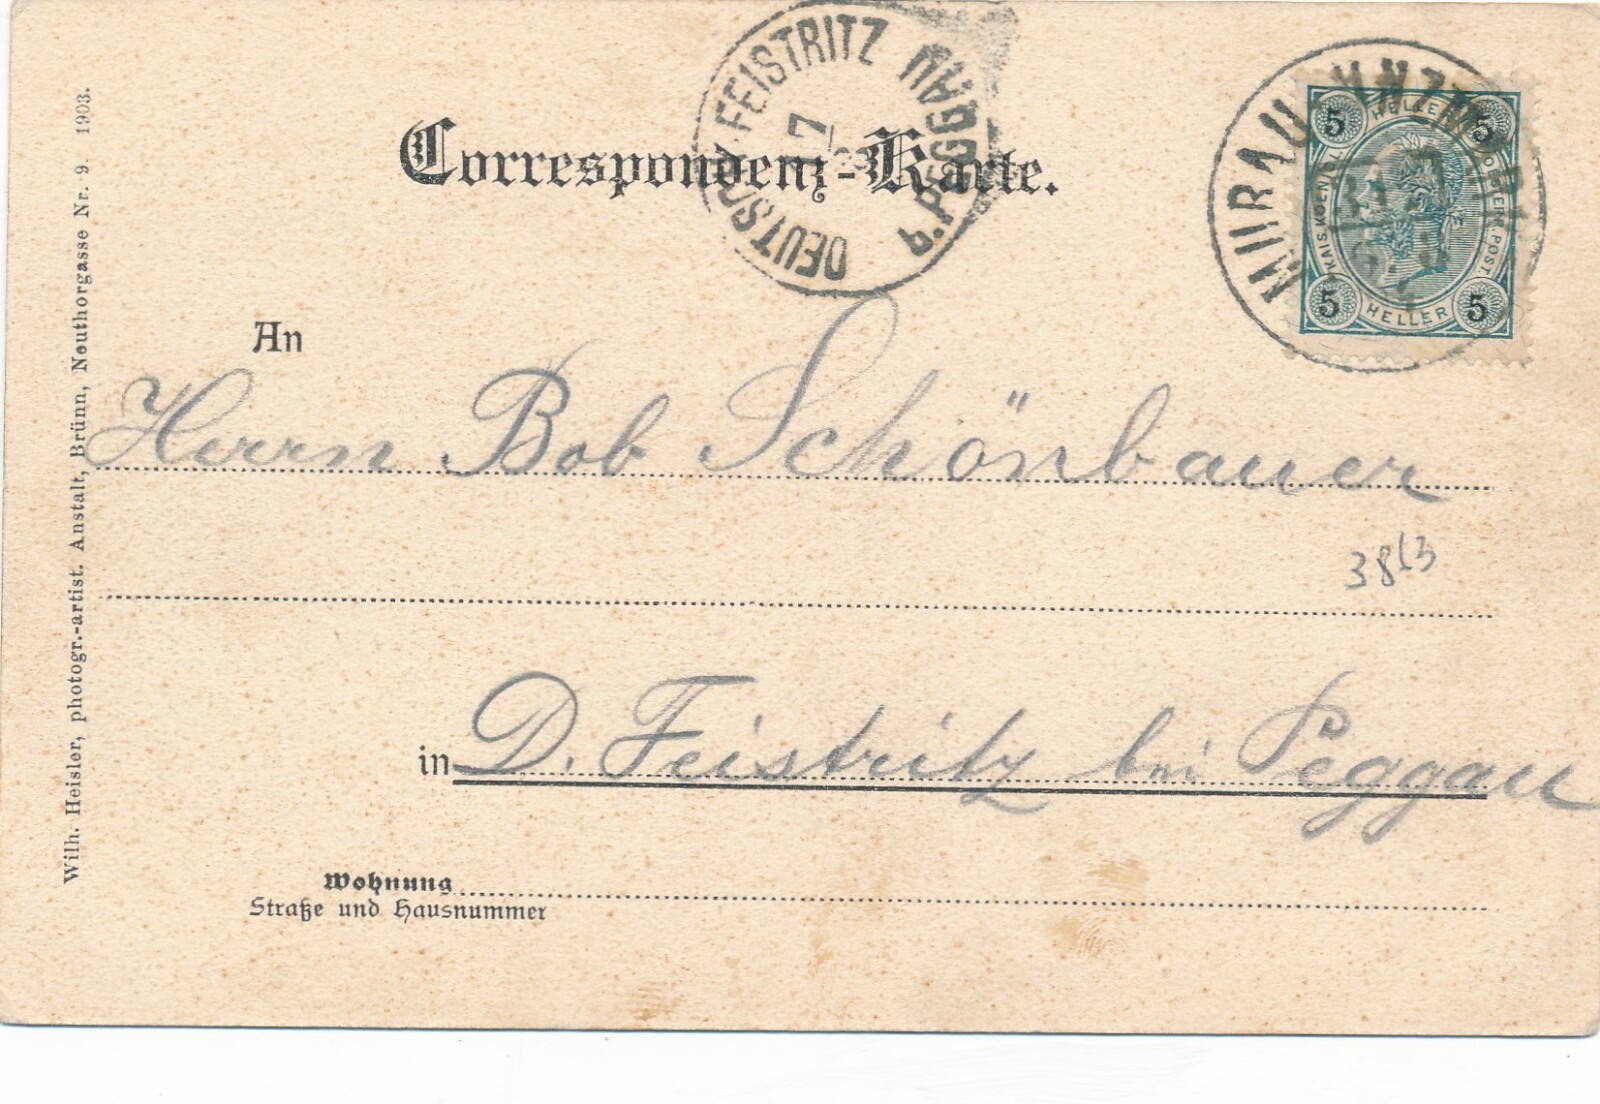 DEUTSCH-FEISTRITZ b. PEGGAU
17
5 HELLER 5
KAIS. KOENIGL. OESTERR. POST.
5 HELLER 5
Correspondenz-Karte.
An
Herrn Bob Schönbauer
3813
in D. Feistritz bei Peggau
Wohnung
Straße und Hausnummer
Wilh. Heisler, photogr.-artist. Anstalt, Brünn, Neuthorgasse Nr. 9. 1903.